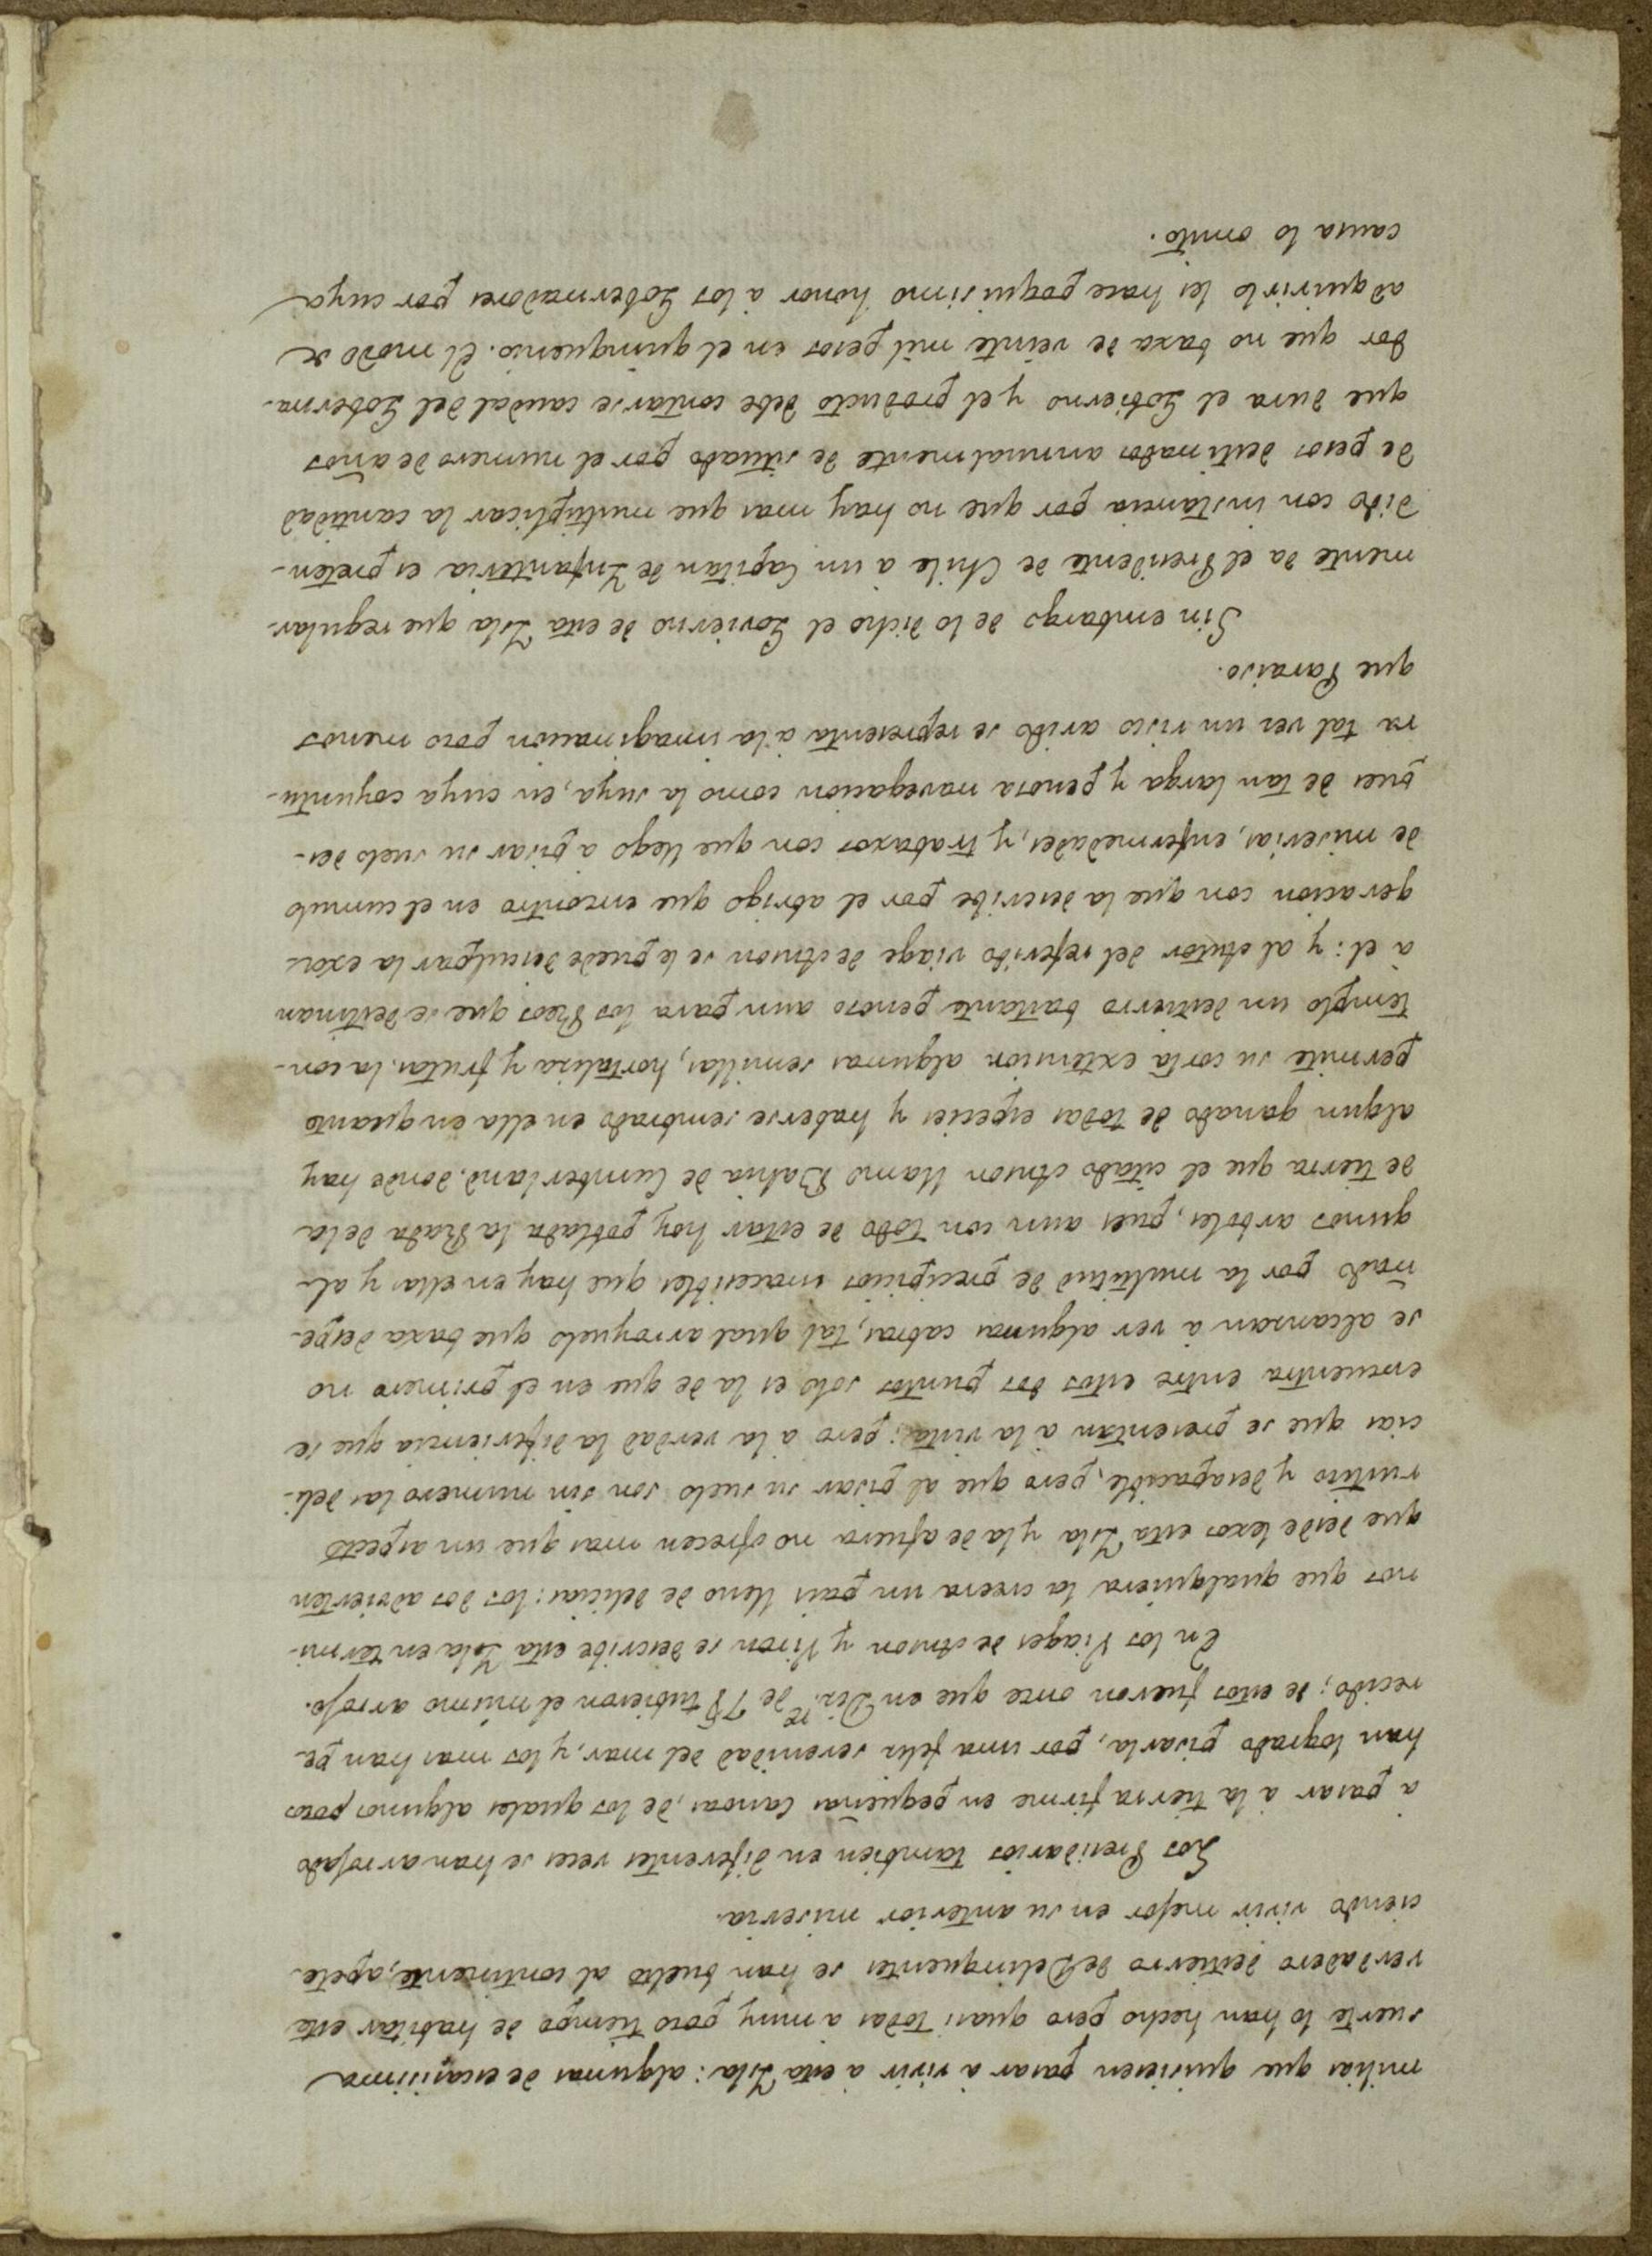 milias que quisiesen pasar à vivir à esta Isla: algunas de escasisima
suerte lo han hecho pero quasi todas a muy poco tiempo de habitar este
verdadero destierro de Delinquentes se han buelto al continente, apete-
ciendo vivir mejor en su anterior miseria.
Los Presidarios tambien en diferentes veces se han arrojado
à pasar à la tierra firme en pequeñas Canoas, de los quales algunos pocos
han logrado pisarla, por una feliz serenidad del mar, y los mas han pe-
recido; de estos fueron once que en Diz.re de 78 tubieron el mismo arrojo.
En los Viages de Anson y Viron se describe esta Isla en termi-
nos que qualquiera la creera un pais lleno de delicias: los dos advierten
que desde lexos esta Isla y la de afuera no ofrecen mas que un aspecto
rustico y desapacible, pero que al pisar su suelo son sin numero las deli-
cias que se presentan à la vista; pero à la verdad la diferiencia que se
encuentra entre estos dos puntos solo es la de que en el primero no
se alcanzan à ver algunas cabras, tal qual arroyuelo que baxa despe-
ñado por la multitud de precipicios inaccesibles que hay en ellas y al-
gunos arboles, pues aun con todo de estar hoy poblada la Rada de la
de tierra que el citado Anson llamo Bahia de Cumberland, donde hay
algun ganado de todas especies y haberse sembrado en ella en quanto
permite su corta extension algunas semillas, hortaliza y frutas, la con-
templo un destierro bastante penoso aun para los Reos que se destinan
à el: y al Autor del referido viage de Anson se le puede disculpar la exa-
geracion con que la describe por el abrigo que encontro en el cumulo
de miserias, enfermedades, y trabaxos con que llego a pisar su suelo des-
pues de tan larga y penosa navegacion como la suya, en cuya coyuntu-
ra tal vez un risco arido se representa à la imaginacion poco menos
que Paraiso.
Sin embargo de lo dicho el Govierno de esta Isla que regular-
mente da el Presidente de Chile à un Capitan de Infanteria es preten-
dido con instancia por que no hay mas que multiplicar la cantidad
de pesos destinados annualmente de situado por el numero de años
que dura el Gobierno y el producto debe contarse caudal del Goberna-
dor que no baxa de veinte mil pesos en el quinquenio. El modo de
adquirirlo les hace poquisimo honor à los Gobernadores por cuya
causa lo omito.